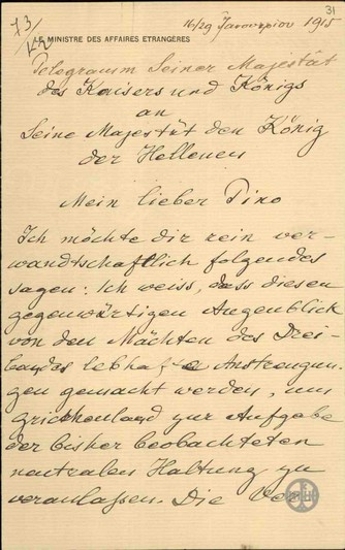 31
73/
16/29 Ἰανουαρίου 1915
LE MINISTRE DES AFFAIRES ETRANGÈRES
Telegramm Seiner Majestät
des Kaisers und Königs
an
Seine Majestät den König
der Hellenen
Mein lieber Tino
Ich möchte dir rein ver-
wandtschaftlich folgendes
sagen: Ich weiss, dass diesen
gegenwärtigen Augenblick
von den Mächten des Drei-
bandes lebhafte Anstrengun-
gen gemacht werden, um
Griechenland zur Aufgabe
der bisher beobachteten
neutralen Haltung zu
veranlassen. Die